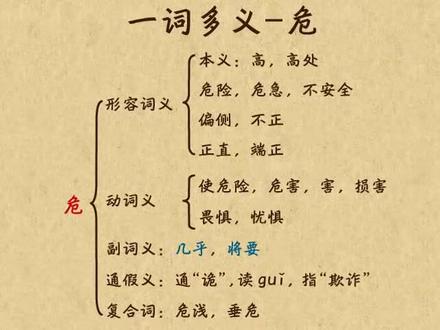 一词多义-危
本义：高，高处
形容词义
危险，危急，不安全
偏侧，不正
正直，端正
危
动词义
使危险，危害，害，损害
畏惧，忧惧
副词义：几乎，将要
通假义：通“诡”，读guǐ，指“欺诈”
复合词：危浅，垂危